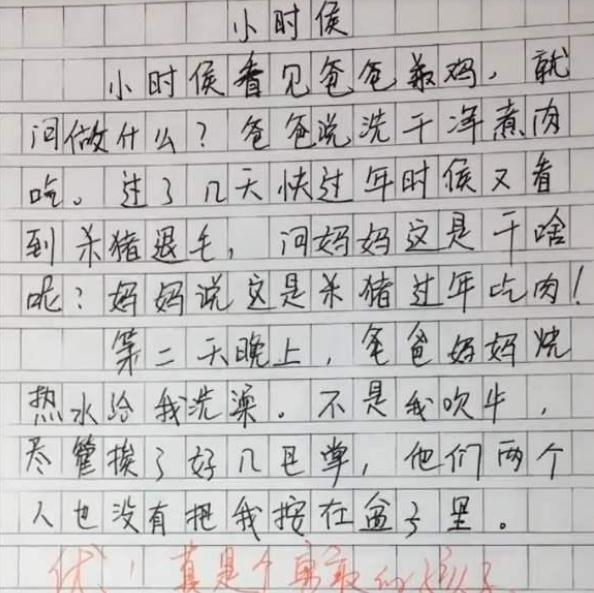 小时侯
小时侯看见爸爸杀鸡，就
问做什么？爸爸说洗干净煮肉
吃。过了几天快过年时侯又看
到杀猪退毛，问妈妈这是干啥
呢？妈妈说这是杀猪过年吃肉！
第二天晚上，爸爸妈妈烧
热水给我洗澡。不是我吹牛，
尽管挨了好几巴掌，他们两个
人也没有把我按在盆子里。
优！真是个勇敢的孩子